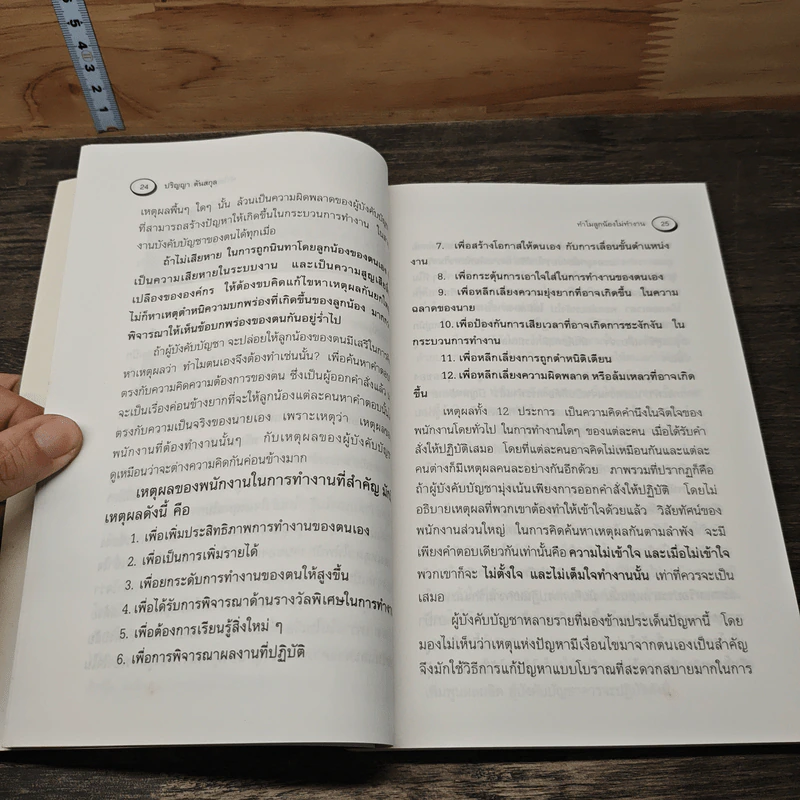 5 5 4 3 2 1
24 ปริญญา ตันสกุล
เหตุผลพื้นๆ ใดๆ นั้น ล้วนเป็นความผิดพลาดของผู้บังคับบัญชา
ที่สามารถสร้างปัญหาให้เกิดขึ้นในกระบวนการทำงาน
งานบังคับบัญชาของตนได้ทุกเมื่อ
ถ้าไม่เสียหาย ในการถูกนินทาโดยลูกน้องของตนเอง
เป็นความเสียหายในระบบงาน และเป็นความสูญเสีย
เปลืองขององค์กร ให้ต้องขบคิดแก้ไขหาเหตุผลกัน
ไม่ก็หาเหตุตำหนิความบกพร่องที่เกิดขึ้นของลูกน้อง
พิจารณาให้เห็นข้อบกพร่องของตนกันอยู่ร่ำไป
ถ้าผู้บังคับบัญชา จะปล่อยให้ลูกน้องของตนมีเสรีในการ
หาเหตุผลว่า ทำไมตนเองจึงต้องทำเช่นนั้น? เพื่อค้นหา
ตรงกับความคิดความต้องการของตน ซึ่งเป็นผู้ออกคำสั่งแล้ว
จะเป็นเรื่องค่อนข้างยากที่จะให้ลูกน้องแต่ละคนหาคำตอบนั้น
ตรงกับความเป็นจริงของนายเอง เพราะเหตุว่า
พนักงานที่ต้องทำงานนั้นๆ กับเหตุผลของผู้บังคับบัญชา
ดูเหมือนว่าจะต่างความคิดกันค่อนข้างมาก
เหตุผลของพนักงานในการทำงานที่สำคัญ
เหตุผลดังนี้ คือ
1. เพื่อเพิ่มประสิทธิภาพการทำงานของตนเอง
2. เพื่อเป็นการเพิ่มรายได้
3. เพื่อยกระดับการทำงานของตนให้สูงขึ้น
4. เพื่อได้รับการพิจารณาด้านรางวัลพิเศษในการทำงาน
5. เพื่อต้องการเรียนรู้สิ่งใหม่ ๆ
6. เพื่อการพิจารณาผลงานที่ปฏิบัติ
ทำไมลูกน้องไม่ทำงาน 25
7. เพื่อสร้างโอกาสให้ตนเอง กับการเลื่อนชั้นตำแหน่ง
งาน
8. เพื่อกระตุ้นการเอาใจใส่ในการทำงานของตนเอง
9. เพื่อหลีกเลี่ยงความยุ่งยากที่อาจเกิดขึ้น ในความ
ฉลาดของนาย
10. เพื่อป้องกันการเสียเวลาที่อาจเกิดการชะงักงัน ใน
กระบวนการทำงาน
11. เพื่อหลีกเลี่ยงการถูกตำหนิติเตียน
12. เพื่อหลีกเลี่ยงความผิดพลาด หรือล้มเหลวที่อาจเกิด
ขึ้น
เหตุผลทั้ง 12 ประการ เป็นความคิดคำนึงในจิตใจของ
พนักงานโดยทั่วไป ในการทำงานใดๆ ของแต่ละคน เมื่อได้รับคำ
สั่งให้ปฏิบัติเสมอ โดยที่แต่ละคนอาจคิดไม่เหมือนกันและแต่ละ
คนต่างก็มีเหตุผลคนละอย่างกันอีกด้วย ภาพรวมที่ปรากฏก็คือ
ถ้าผู้บังคับบัญชามุ่งเน้นเพียงการออกคำสั่งให้ปฏิบัติ โดยไม่
อธิบายเหตุผลที่พวกเขาต้องทำให้เข้าใจด้วยแล้ว วิสัยทัศน์ของ
พนักงานส่วนใหญ่ ในการคิดค้นหาเหตุผลกันตามลำพัง จะมี
เพียงคำตอบเดียวกันเท่านั้นคือ ความไม่เข้าใจ และเมื่อไม่เข้าใจ
พวกเขาก็จะ ไม่ตั้งใจ และไม่เต็มใจทำงานนั้น เท่าที่ควรจะเป็น
เสมอ
ผู้บังคับบัญชาหลายรายที่มองข้ามประเด็นปัญหานี้ โดย
มองไม่เห็นว่าเหตุแห่งปัญหามีเงื่อนไขมาจากตนเองเป็นสำคัญ
จึงมักใช้วิธีการแก้ปัญหาแบบโบราณที่สะดวกสบายมากในการ